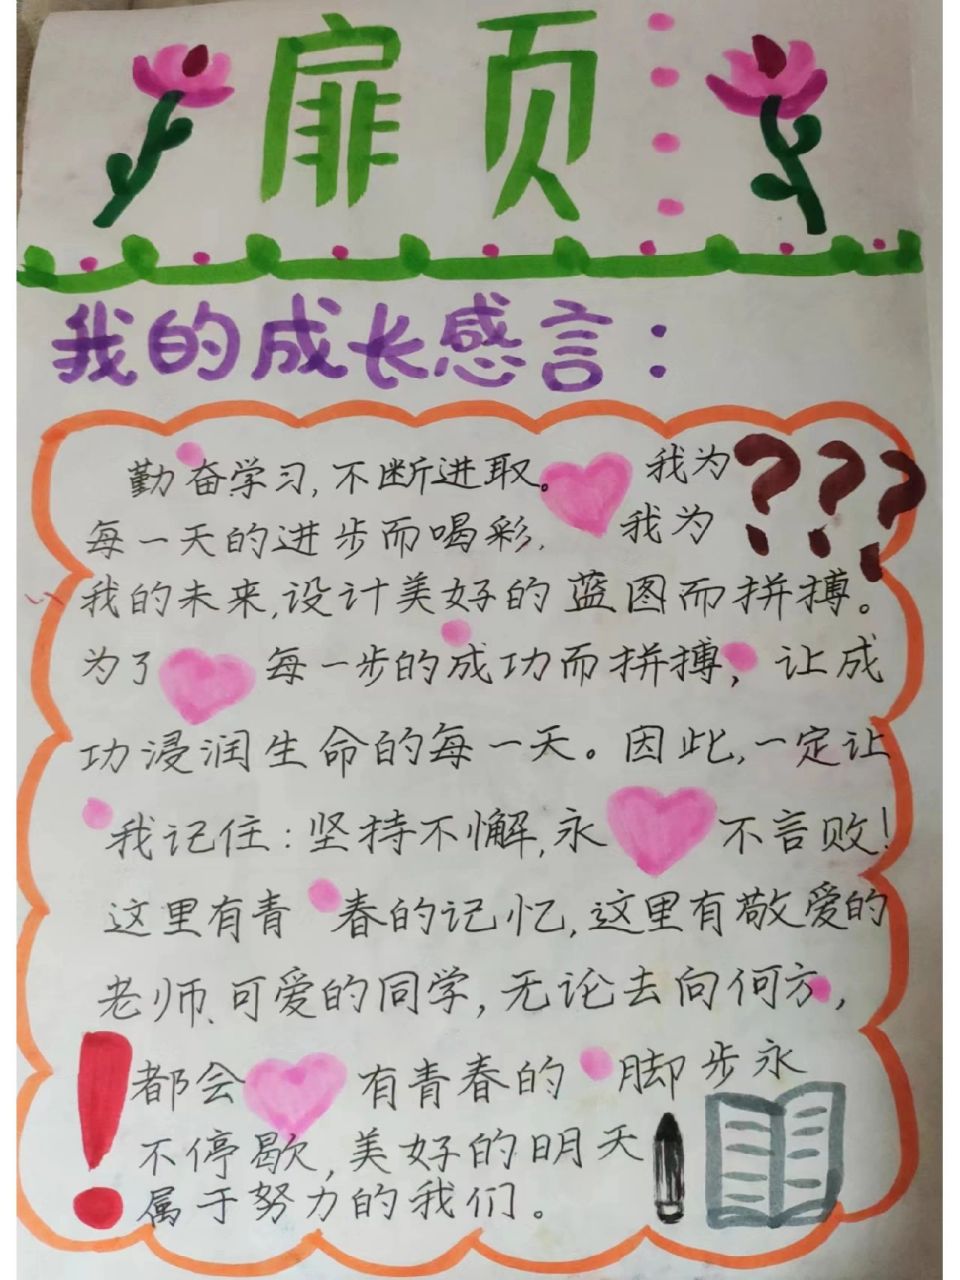 扉页
我的成长感言：
勤奋学习,不断进取。 我为
每一天的进步而喝彩, 我为
我的未来,设计美好的蓝图而拼搏。
为了 每一步的成功而拼搏, 让成
功浸润生命的每一天。因此,一定让
我记住:坚持不懈,永 不言败!
这里有青 春的记忆,这里有敬爱的
老师、可爱的同学,无论去向何方,
都会 有青春的 脚步永
不停歇,美好的明天
属于努力的我们。